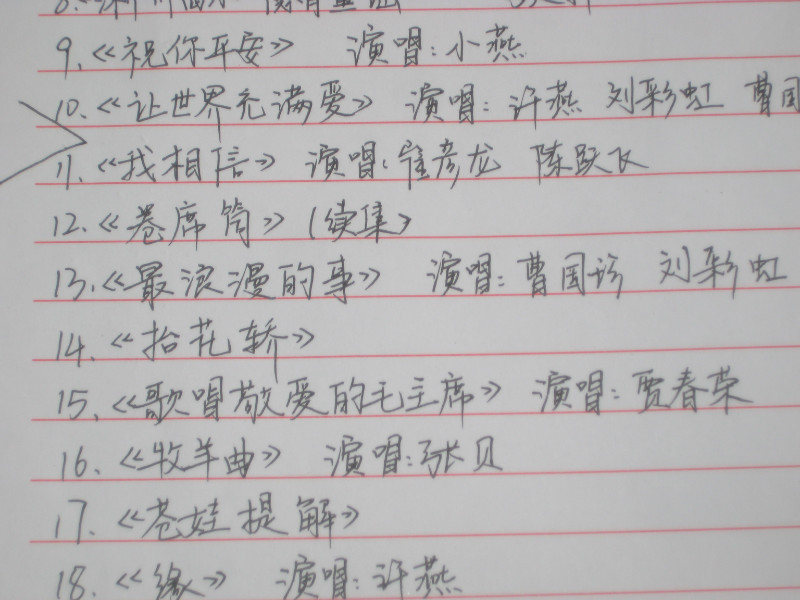 9.《祝你平安》 演唱:小燕
10.《让世界充满爱》 演唱:许燕 刘彩虹 曹国
11.《我相信》 演唱:崔彦龙 陈跃飞
12.《卷席筒》(续集)
13.《最浪漫的事》 演唱:曹国珍 刘彩虹
14.《抬花轿》
15.《歌唱敬爱的毛主席》 演唱:贾春荣
16.《牧羊曲》 演唱:张贝
17.《苍娃提解》
18.《缘》 演唱:许燕